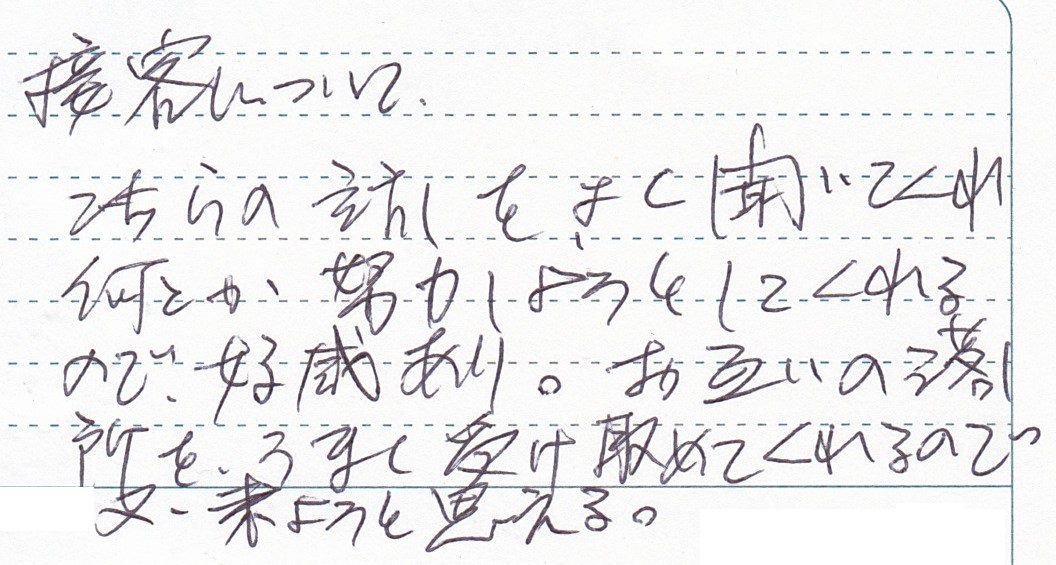 接客について.
こちらの話しをよく聞いてくれ
何とか努力しようとしてくれる
ので、好感あり。お互いの落し
所を、うまく受け取めてくれるので
又、来ようと思える。